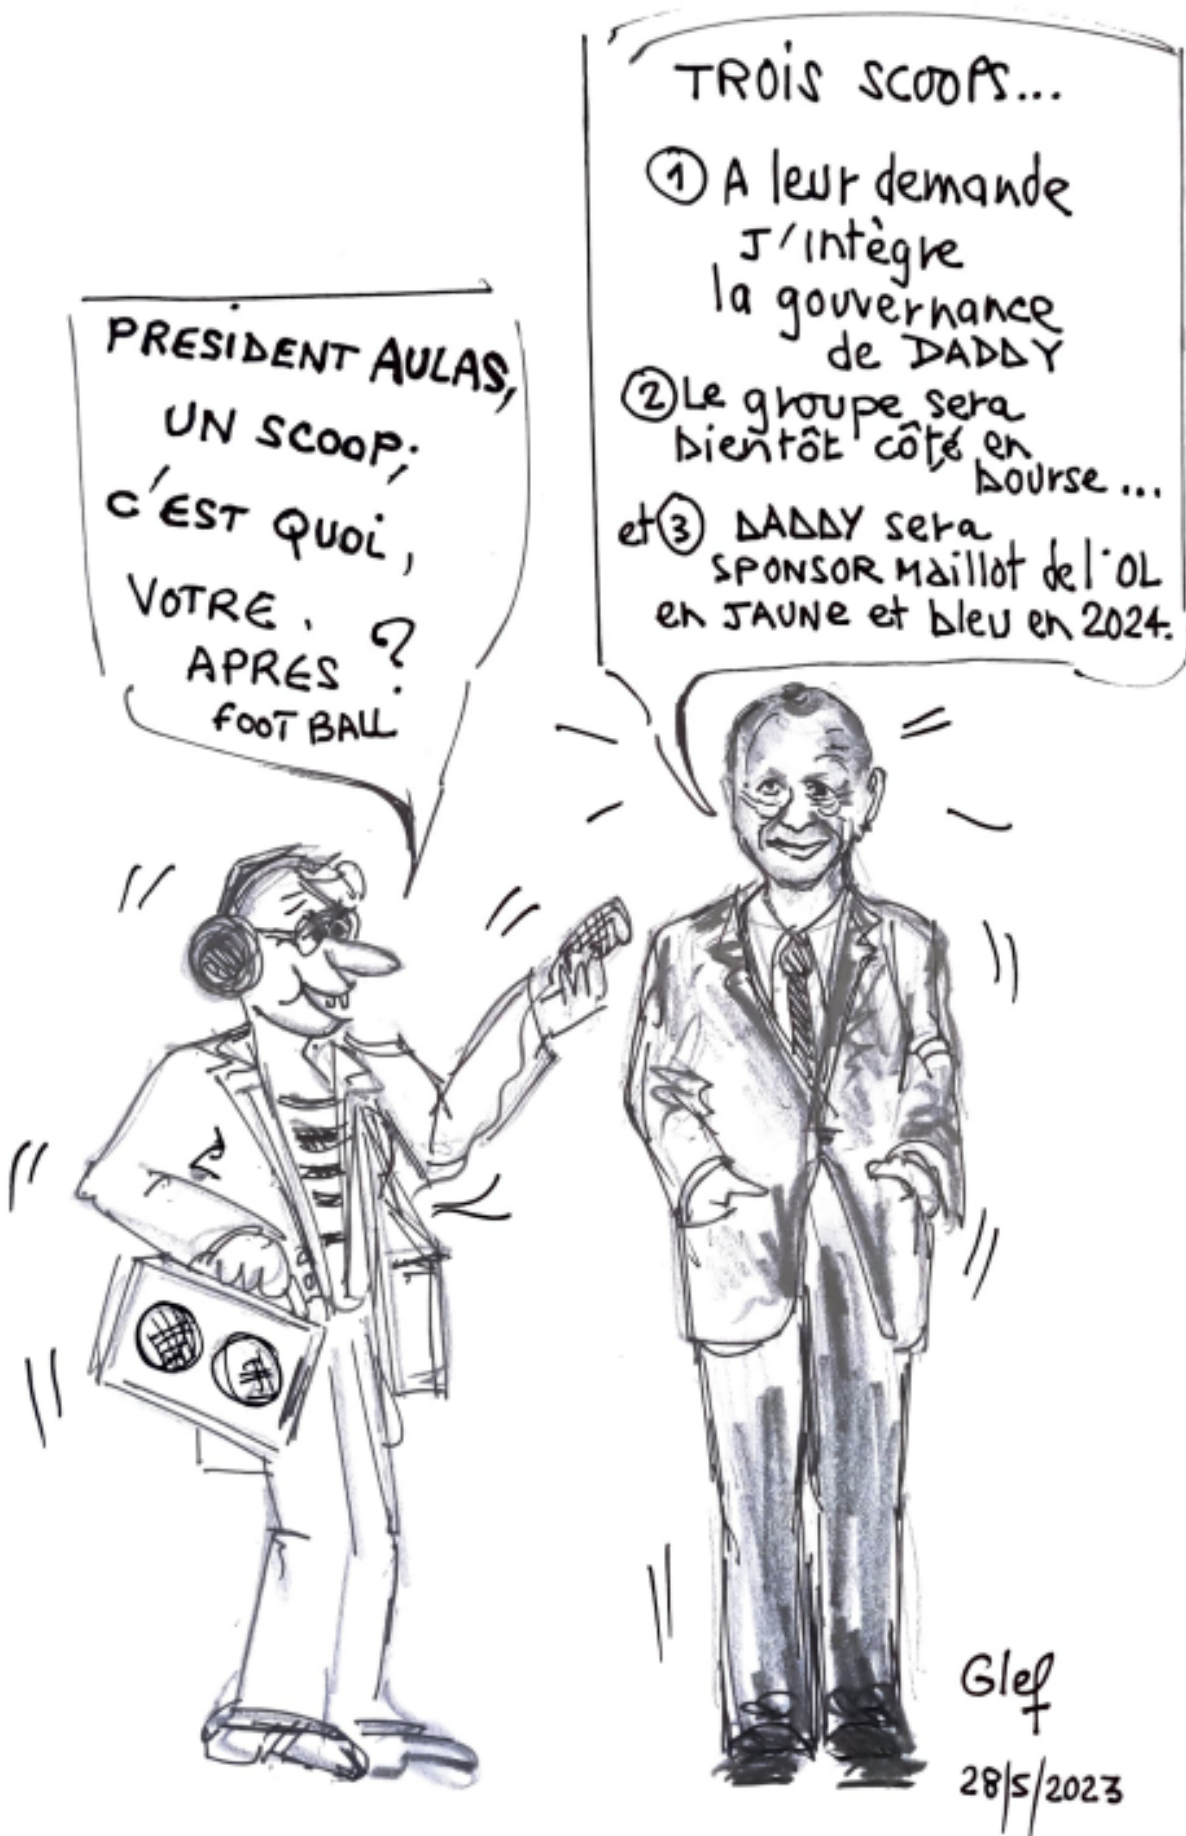 PRESIDENT AULAS,
UN SCOOP;
C'EST QUOI,
VOTRE
APRES
FOOTBALL ?
TROIS SCOOPS...
① A leur demande
J'intègre
la gouvernance
de DADDY
② Le groupe sera
bientôt côté en
bourse ...
et ③ DADDY sera
SPONSOR Maillot de l'OL
en JAUNE et bleu en 2024.
Glef
28/5/2023